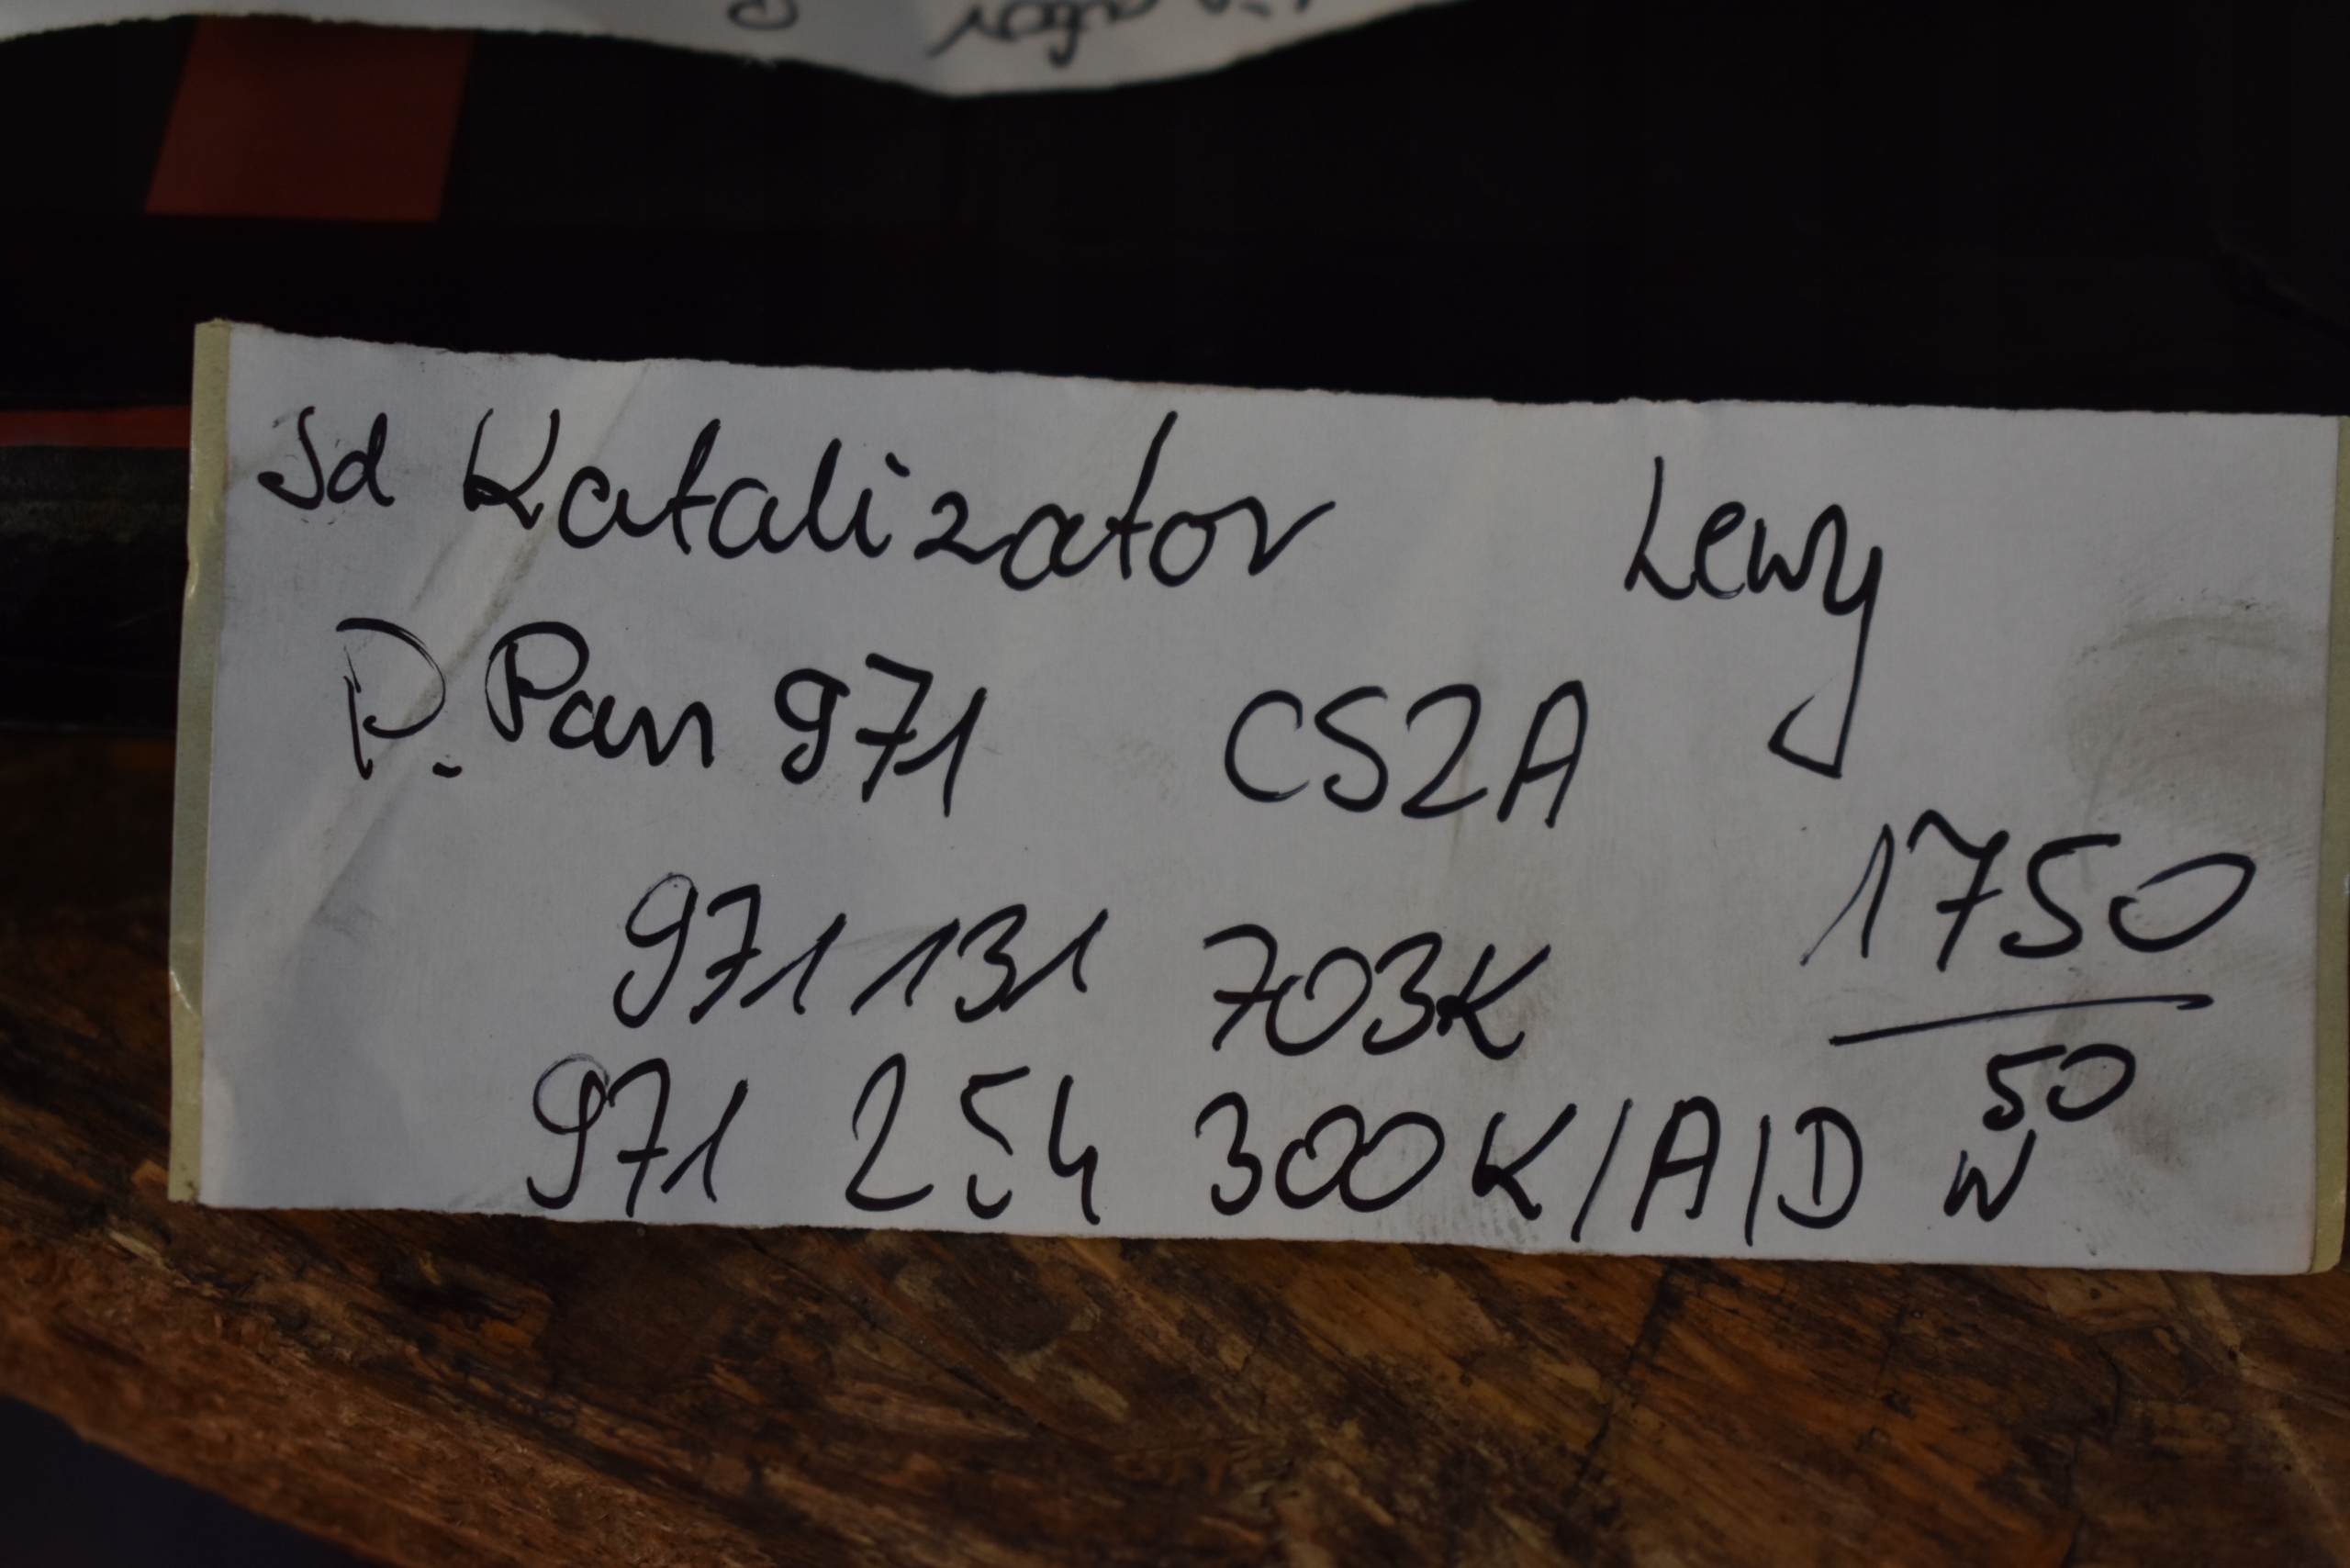 Jd Katalizator Lewy
P. Pan 971 CS2A
971 131 703K 1750
971 254 300K/A/D 50
W